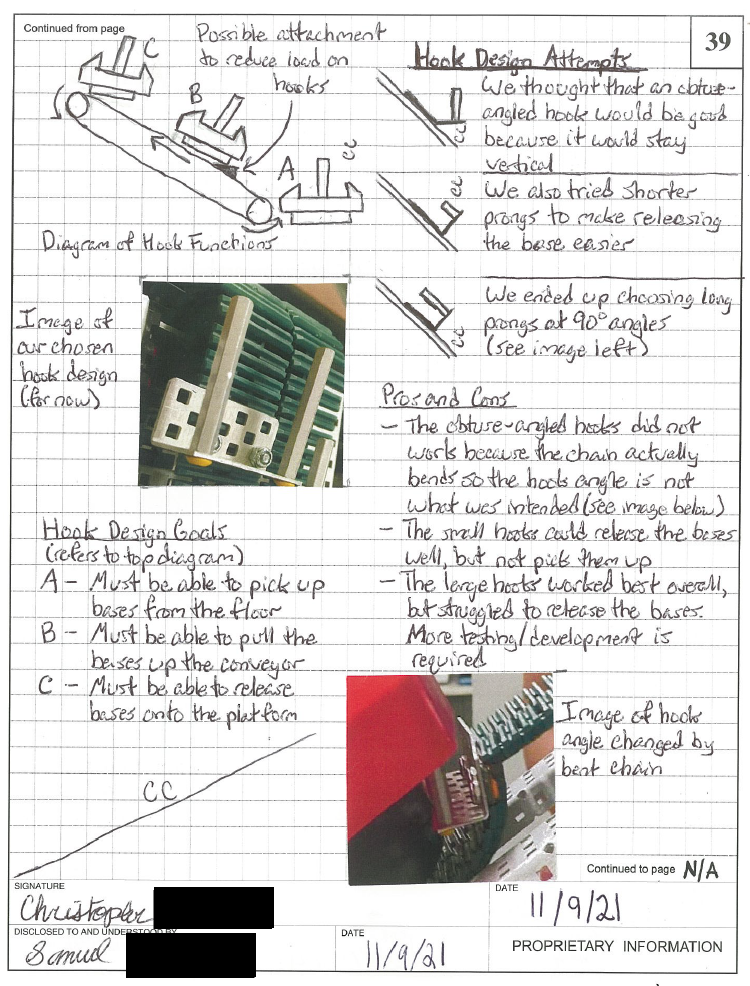 Continued from page
39
Possible attachment
to reduce load on
hooks
C
B
A
CC
Diagram of Hook Functions
Hook Design Attempts
We thought that an obtuse-
angled hook would be good
because it would stay
vertical
CC
We also tried shorter
prongs to make releasing
the base easier
CC
We ended up choosing long
prongs at 90° angles
(see image left)
CC
Image of
our chosen
hook design
(for now)
Pros and Cons
- The obtuse-angled hooks did not
work because the chain actually
bends so the hook angle is not
what was intended (see image below)
- The small hooks could release the bases
well, but not pick them up
- The large hooks worked best overall,
but struggled to release the bases.
More testing/development is
required
Hook Design Goals
(refers to top diagram)
A - Must be able to pick up
bases from the floor
B - Must be able to pull the
bases up the conveyor
C - Must be able to release
bases onto the platform
CC
Image of hook
angle changed by
bent chain
Continued to page N/A
SIGNATURE
Christopher
DATE
11/9/21
DISCLOSED TO AND UNDERSTOOD BY
Samuel
DATE
11/9/21
PROPRIETARY INFORMATION